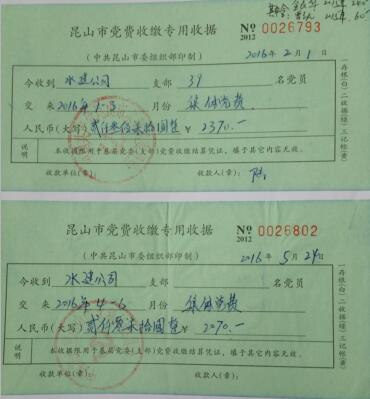 昆山市党费收缴专用收据 № 0026793
2012
(中共昆山市委组织部印制) 2016年2月1日
今收到 水建公司 支部 39 名党员
交来 2016年1-3 月份 集体党费
人民币(大写) 贰仟叁佰柒拾圆整 ¥ 2370.—
说明 本收据限用于基层党委(支部)党费收缴结算凭证,填于其它内容无效。
收款单位(章): 收款人(章):
一存根(白)二收据(绿)三记帐(黄)
昆山市党费收缴专用收据 № 0026802
2012
(中共昆山市委组织部印制) 2016年5月24日
今收到 水建公司 支部 名党员
交来 2016年4-6 月份 集体党费
人民币(大写) 贰仟零柒拾圆整 ¥ 2070.—
说明 本收据限用于基层党委(支部)党费收缴结算凭证,填于其它内容无效。
收款单位(章): 收款人(章):
一存根(白)二收据(绿)三记帐(黄)